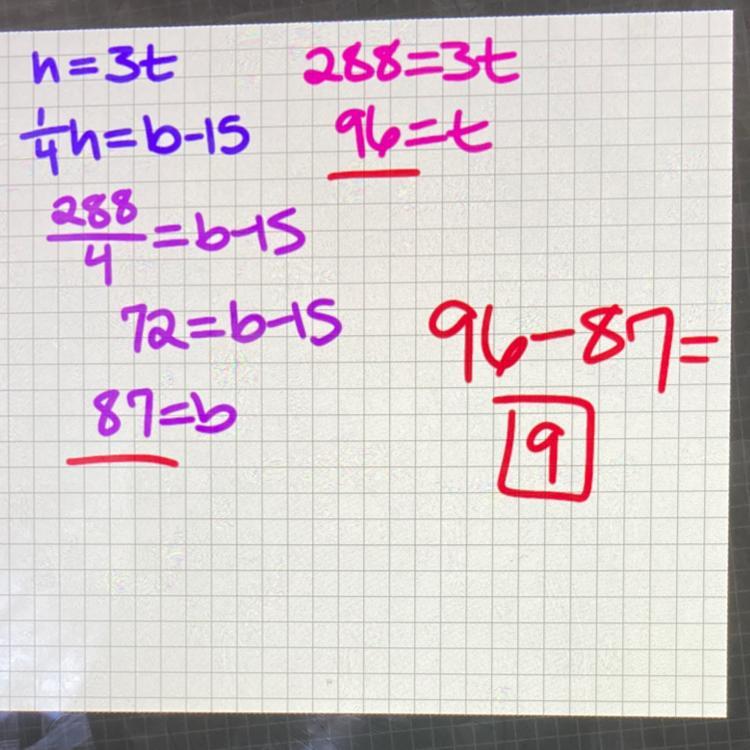 h=3t
1/4h=b-15
288/4=b-15
72=b-15
87=b
288=3t
96=t
96-87=
9